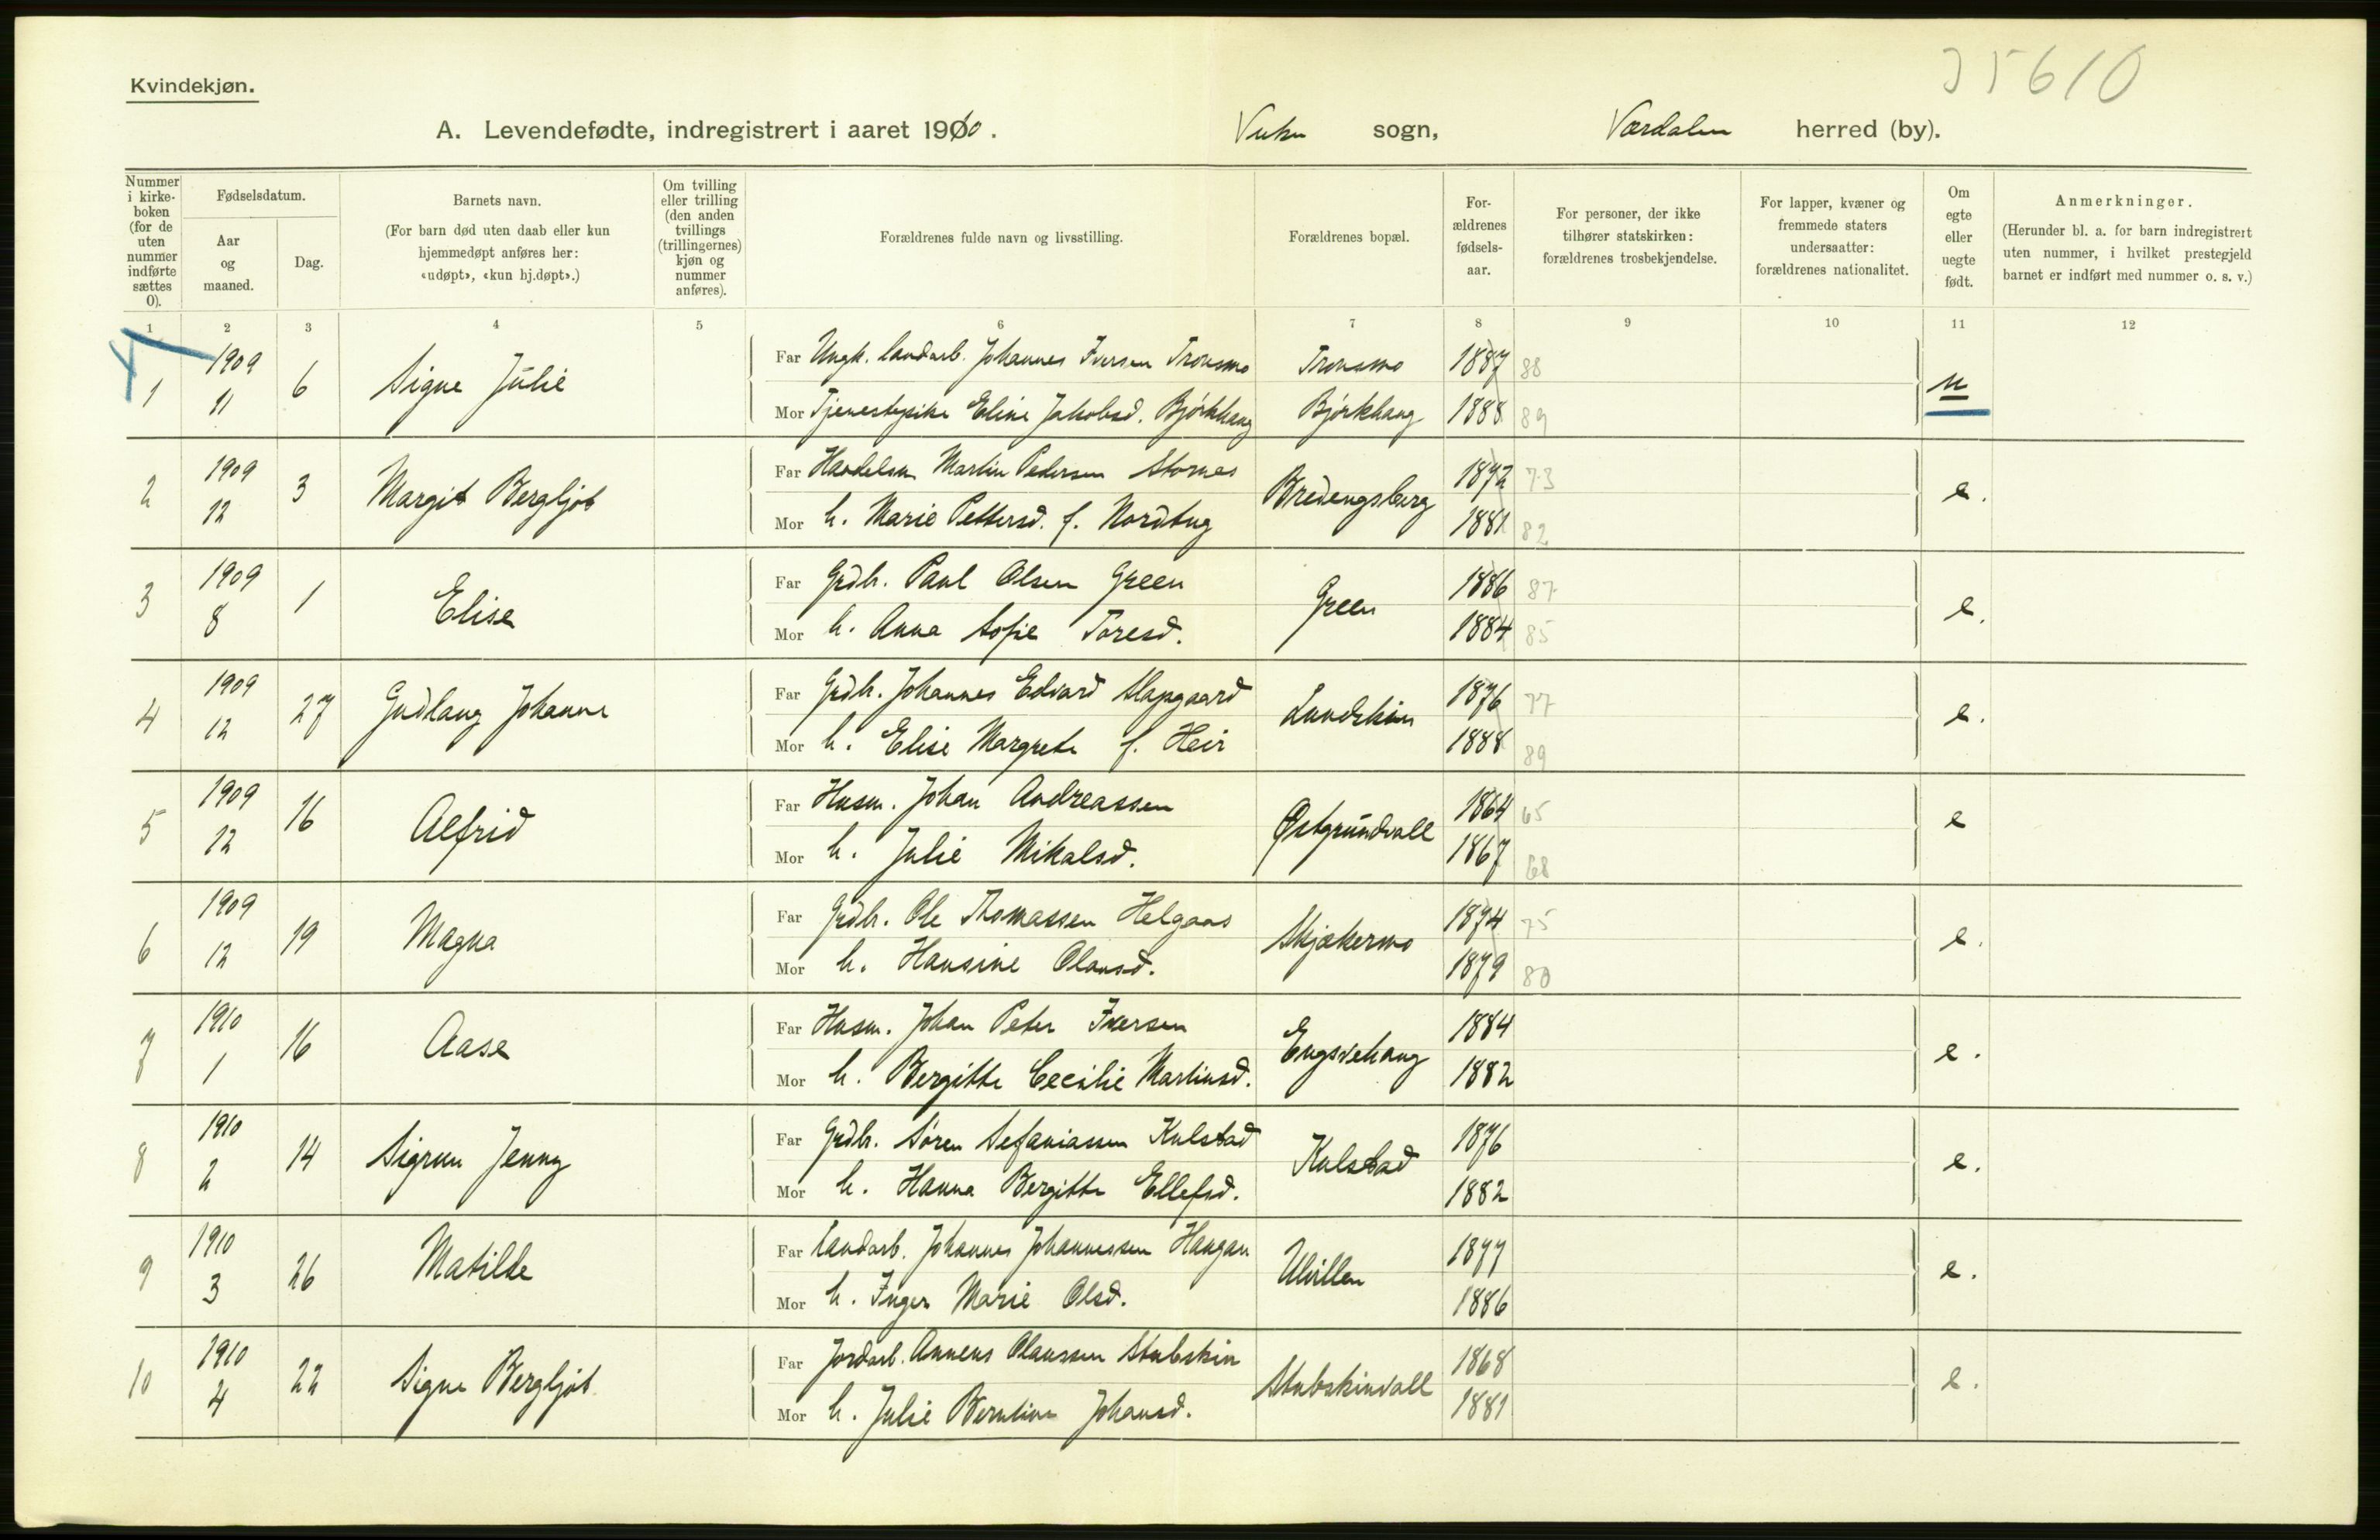 35610
Kvindekjøn.
A. Levendefødte, indregistrert i aaret 1910. Vuku sogn, Værdalen herred (by).
Nummer i kirke-boken (for de uten nummer indførte sættes 0).
Fødselsdatum.
Aar og maaned.
Dag.
Barnets navn.
(For barn død uten daab eller kun hjemmedøpt anføres her: «udøpt», «kun hj.døpt».)
Om tvilling eller trilling (den anden tvillings (trillingernes) kjøn og nummer anføres).
Forældrenes fulde navn og livsstilling.
Forældrenes bopæl.
For-ældrenes fødsels-aar.
For personer, der ikke tilhører statskirken: forældrenes trosbekjendelse.
For lapper, kvæner og fremmede staters undersaatter: forældrenes nationalitet.
Om egte eller uegte født.
Anmerkninger.
(Herunder bl. a. for barn indregistrert uten nummer, i hvilket prestegjeld barnet er indført med nummer o. s. v.)
1 2 3 4 5 6 7 8 9 10 11 12
1 1909 11 6 Signe Julie
Far Ungk. landarb. Johannes Iversen Tronsmo Tronsmo 1887 88
Mor Tjenestepike Eline Jakobsd. Bjørkhaug Bjørkhaug 1888 89
u
2 1909 12 3 Margit Bergljot
Far Handelsm. Martin Pedersen Stornes Bredengsberg 1872 73
Mor h. Marie Pettersd. f. Nordtug 1881 82
e.
3 1909 8 1 Elise
Far Grdb. Paul Olsen Green Green 1886 87
Mor h. Anna Sofie Toresd. 1884 85
e.
4 1909 12 27 Gudlaug Johanne
Far Grdb. Johannes Edvard Slapgaard Lundskin 1876 77
Mor h. Elise Margrete f. Heir 1888 89
e.
5 1909 12 16 Alfrid
Far Husm. Johan Andreassen Østgrundvall 1864 65
Mor h. Julie Mikalsd. 1867 68
e
6 1909 12 19 Magna
Far Grdb. Ole Thomassen Helgaas Skjækermo 1874 75
Mor h. Hansine Olausd. 1879 80
e.
7 1910 1 16 Aase
Far Husm. Johan Peter Iversen Engsvehaug 1884
Mor h. Bergitte Cecilie Martinsd. 1882
e.
8 1910 2 14 Sigrun Jenny
Far Grdb. Søren Sefaniassen Kulstad Kulstad 1876
Mor h. Hanna Bergitte Ellefsd. 1882
e.
9 1910 3 26 Matilde
Far landarb. Johannes Johannessen Haugan Ulvillen 1877
Mor h. Inger Marie Olsd. 1886
e.
10 1910 4 22 Signe Bergljot
Far Jordarb. Annæus Olaussen Stubskin Stubskinvall 1868
Mor h. Julie Berntine Johansd. 1881
e.